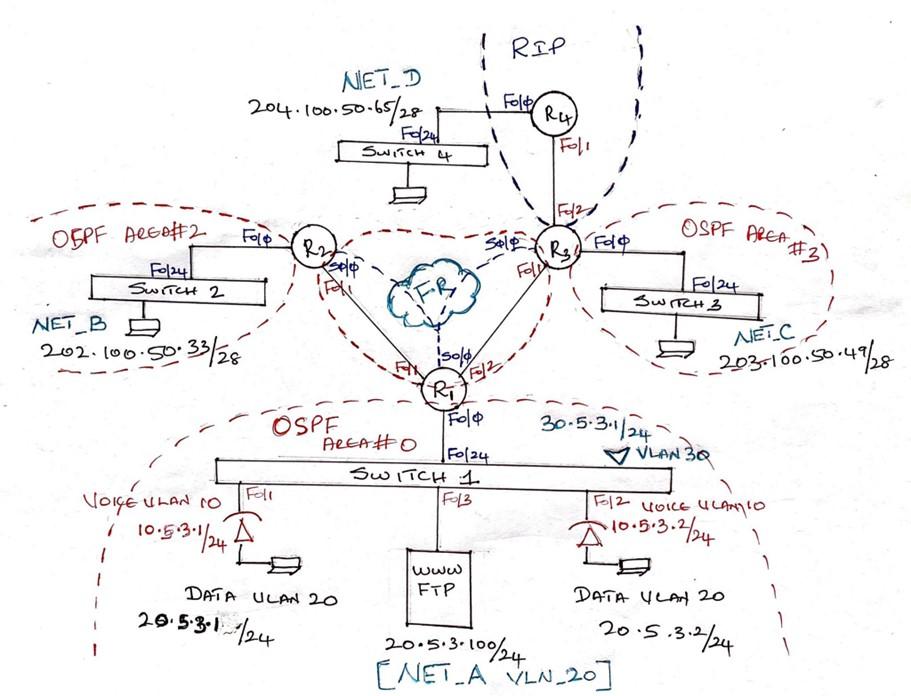 RIP
NET_D
204.100.50.65/28
Fo/0
R4
Fo/24
Fo/1
SWITCH 4
Fo/2
OSPF AREA#2
Fo/0
R2
So/0
R3
Fo/0
OSPF AREA #3
Fo/24
So/0
Fo/1
Fo/1
Fo/24
SWITCH 2
FR
SWITCH 3
NET_B
202.100.50.33/28
NET_C
203.100.50.49/28
So/0
Fo/1
Fo/2
R1
Fo/0
OSPF
AREA#0
30.5.3.1/24
VLAN 30
Fo/24
SWITCH 1
VOICE VLAN 10
Fo/1
Fo/3
Fo/2
VOICE VLAN 10
10.5.3.1/24
10.5.3.2/24
WWW
FTP
DATA VLAN 20
DATA VLAN 20
20.5.3.1/24
20.5.3.2/24
20.5.3.100/24
[NET_A VLN_20]